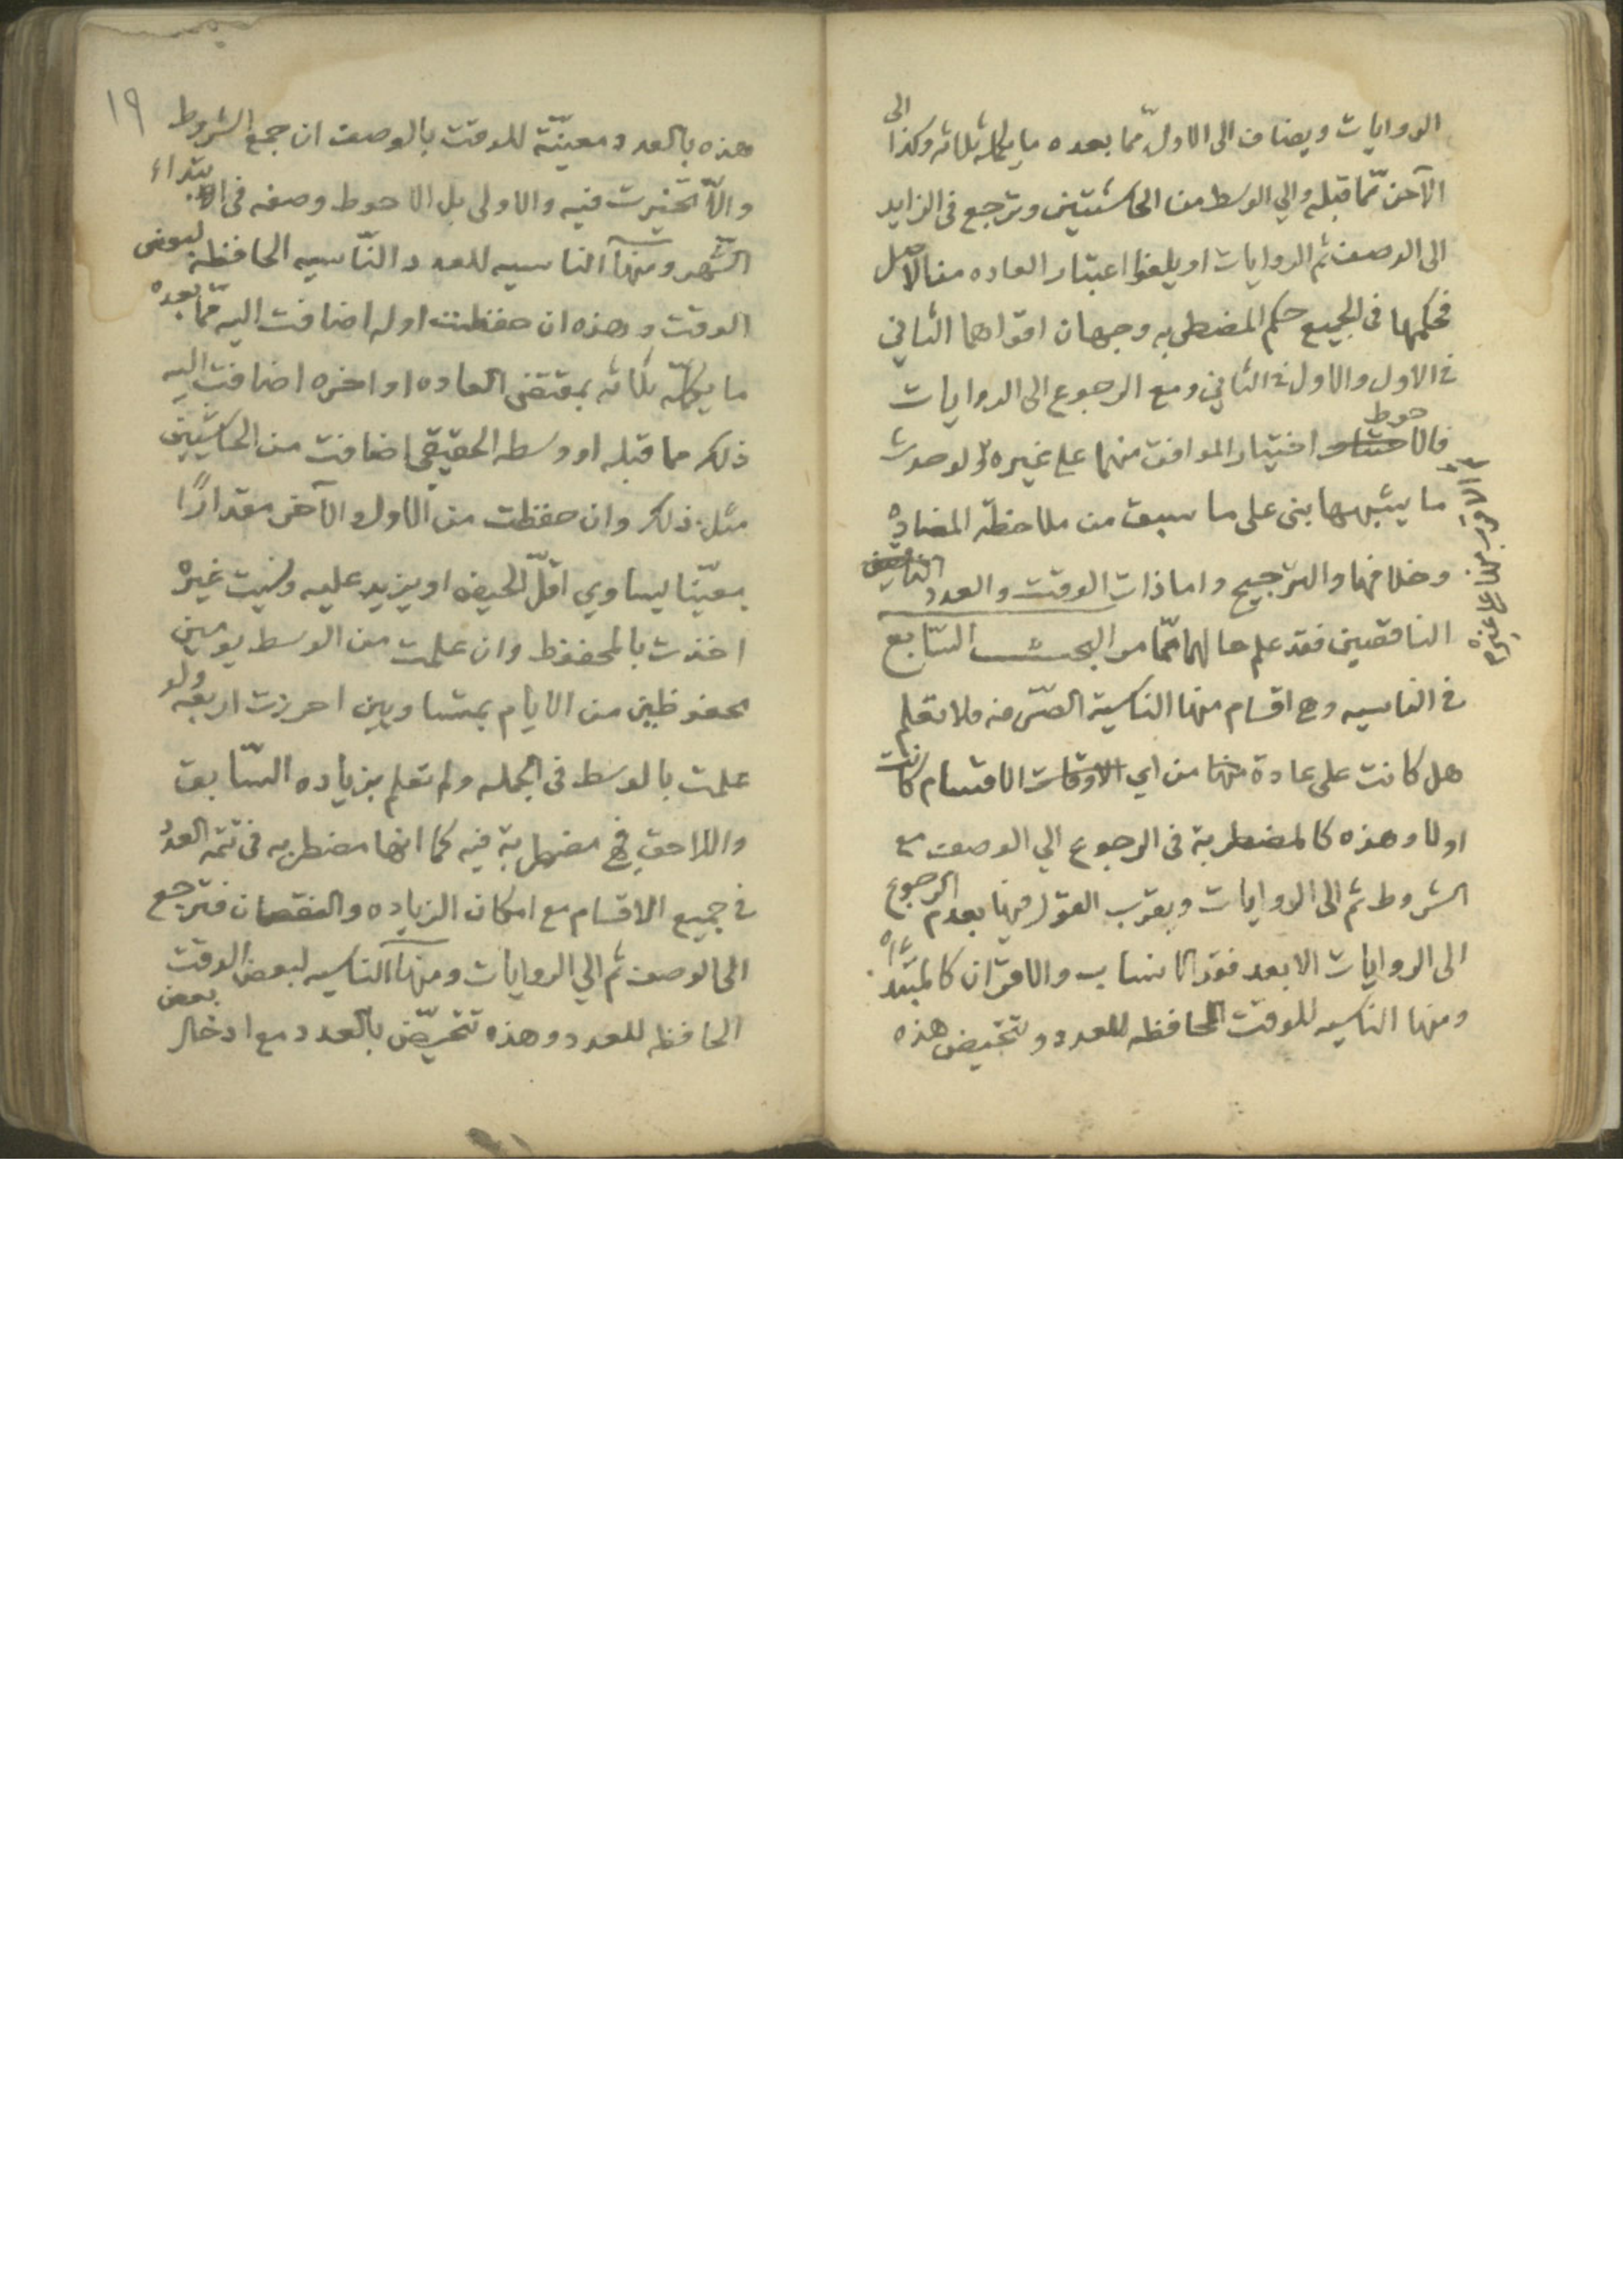 الروايات ويضاف الى الاول مّما بعده ما يكمله ثلاثه وكذا الى
الآخر مّما قبله والي الوسط من الحاشيتين وترجع في الزايد
الى الوصف ثم الروايات او يلغوا اعتبار العاده من الاصل
فحكمها في الجميع حكم المضطربه وجهان اقواهما الثاني
في الاول والاول في الثاني ومع الرجوع الى الروايات
فالاحوط اختيار الموافق منهما على غيره ولو حدث
ما يشبهها بنى على ما سبق من ملاحظة المضاده
وخلافها والترجيح واما ذات الوقت والعدد
الناقصين فقد علم حالهما مّما مر البحث السّابع
في الناسيه وهي اقسام منها الناسية الصّرفه فلا تعلم
هل كانت على عادة من اي الاقسام كانت
اولا وهذه كالمضطربة في الرجوع الي الوصف مع
الشروط ثم الى الروايات ويقرب القول فيها بعدم الرجوع
الى الروايات الا بعد فقد الانساب والاقران كالمبتدئه
ومنها الناسيه للوقت الحافظه للعدد وتتحيض هذه
١٩
هذه بالعدد معيّنة للوقت بالوصف ان جمع الشروط
والاّ تخيّرت فيه والاولى بل الاحوط وصفه في ابتداء
الشّهر ومنها الناسيه للعدد النّاسيه الحافظه لبعض
الوقت وهذه ان حفظت اوله اضافت اليه مّما بعده
ما يكمله ثلاثه بمقتضى العاده او اخره اضافت اليه
ذلك مما قبله او وسطه الحقيقي اضافت من الحاشيتين
مثل ذلك وان حفظت من الاول والآخر مقدارًا
معيّنا يساوي اقلّ الحيض او يزيد عليه ونسيت غيره
اخذت بالمحفوظ وان علمت من الوسط يومين
محفوظين من الايام بمتساويين احرزت اربعه ولو
علمت بالوسط في الجمله ولم تعلم بزياده السّابق
واللاحق فهي مضطربة فيه كما انها مضطربه في تتمه العدد
في جميع الاقسام مع امكان الزياده والنقصان فترجع
الى الوصف ثم الي الروايات ومنها الناسيه لبعض الوقت
الحافظه للعدد وهذه تتحيّض بالعدد مع ادخال بعض